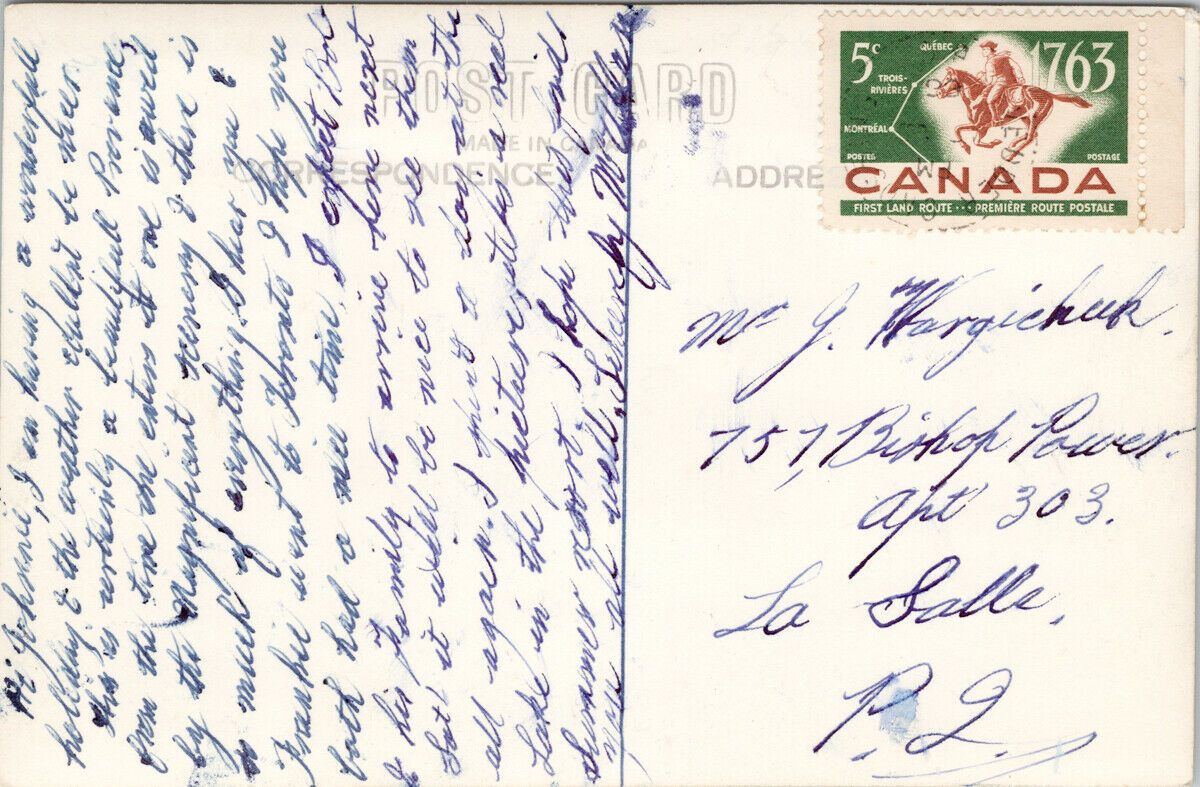 POST CARD
MADE IN CANADA
CORRESPONDENCE
ADDRESS
Hi Johnnie, I am having a wonderfull
holliday & the weather couldn't be nicer.
this is certainly a beautifull Province,
from the time one enters it one is awed
by the Magnificent scenery & there is
so much of everything. I hear you &
Frankie went to Toronto I hope you
both had a nice time. I expect Bob
& his family to arrive here next
Sat. it will be nice to see them
all again. I spent a day at the
Lake in the picture, its a real
summer resort. I hope this finds
you all well. Sincerely
5c
QUÉBEC
1763
TROIS-
RIVIÈRES
MONTRÉAL
POSTES
POSTAGE
CANADA
FIRST LAND ROUTE ··· PREMIÈRE ROUTE POSTALE
Mr J. Hargichuk.
757, Bishop Power.
Apt 303.
La Salle,
P. Q.